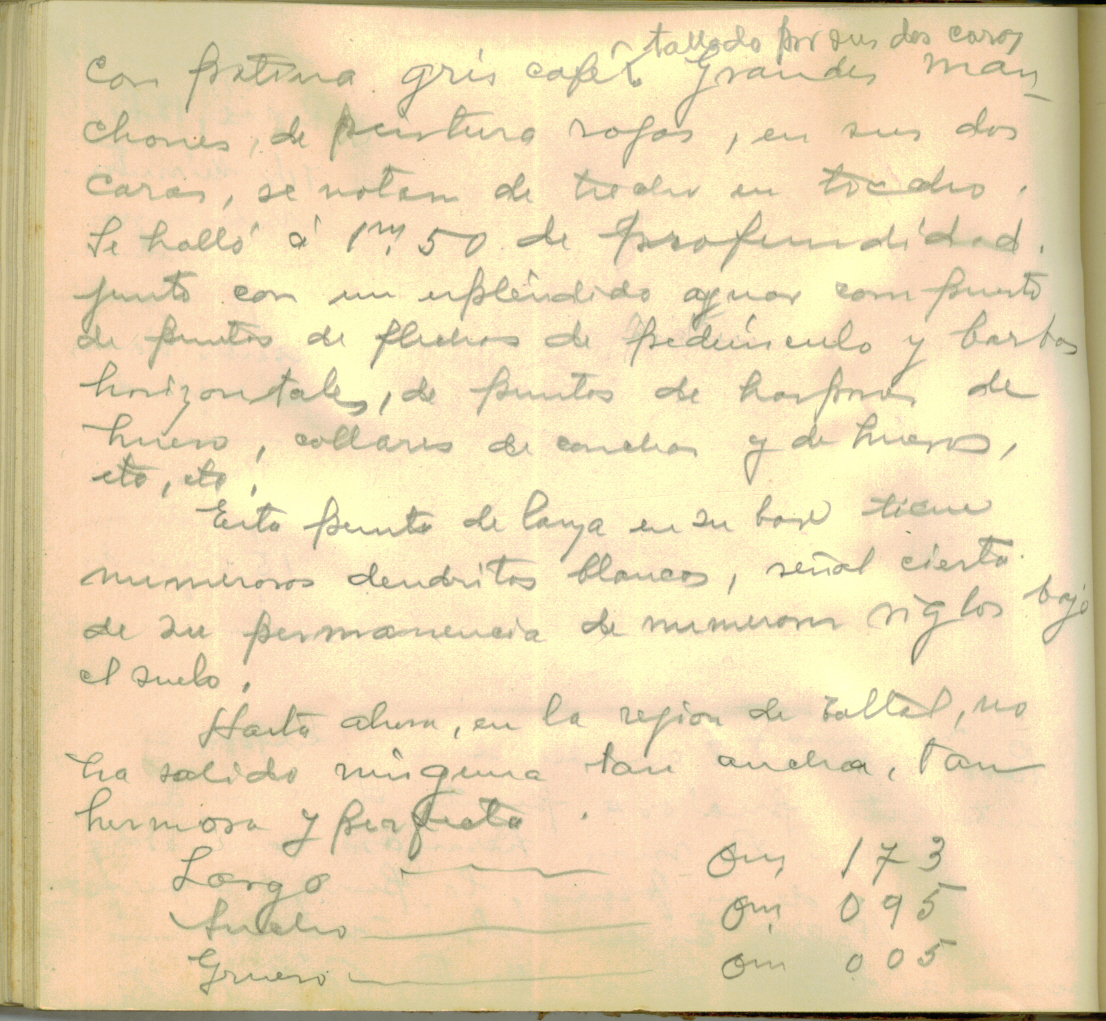 tallado por sus dos caras
con patina gris café. Grandes man
chones, de pintura rojas, en sus dos
caras, se notan de trecho en trecho.
Se halló á 1m 50 de profundidad.
junto con un espléndido ajuar compuesto
de puntas de flechas de pedúnculo y barbas
horizontales, de puntas de harpones de
hueso, collares de conchas y de huesos,
etc, etc.
Esta punta de lanza en su base tiene
numerosos dendritos blancos, señal cierta
de su permanencia de numerosos siglos bajo
el suelo.
Hasta ahora, en la region de Taltal, no
ha salido ninguna tan ancha, tan
hermosa y perfecta.
Largo 0m 173
Ancho 0m 095
Grueso 0m 005